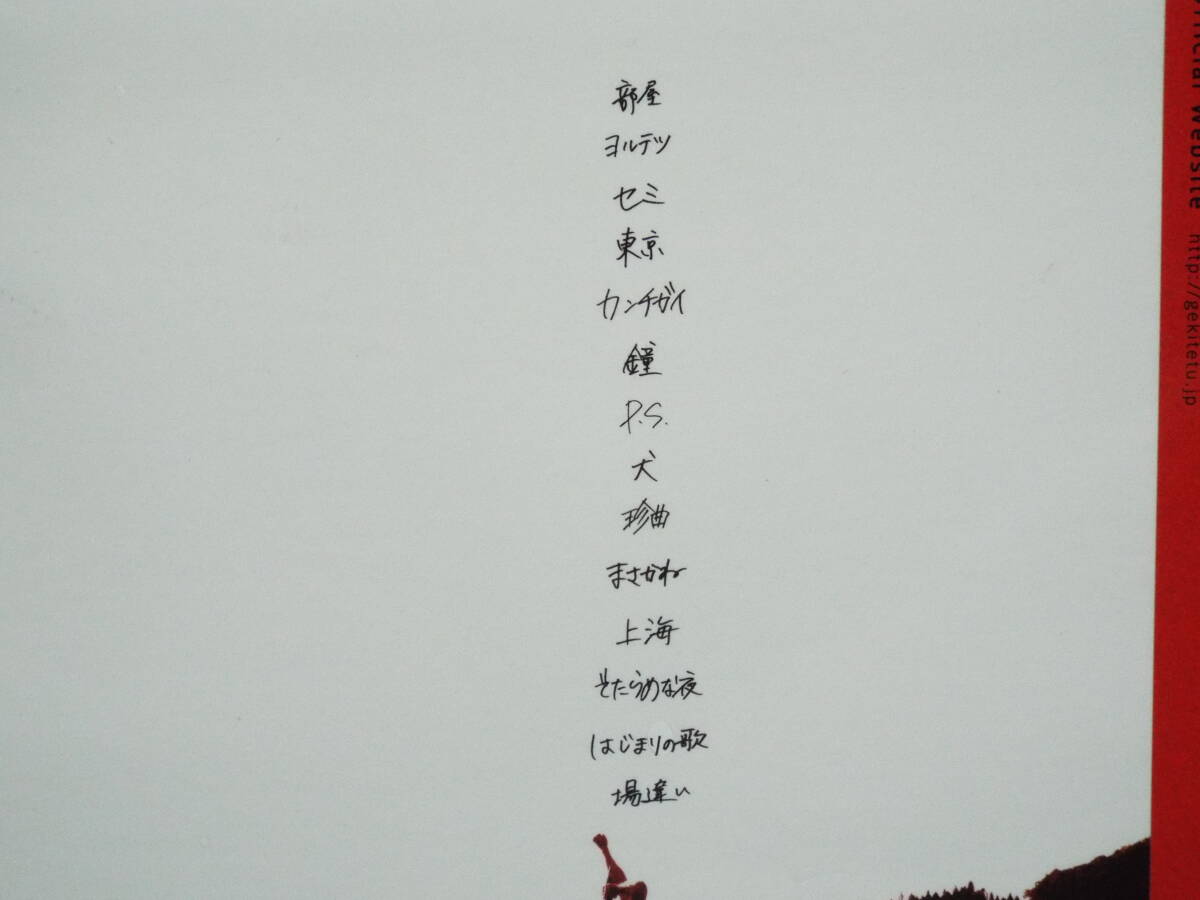 部屋
ヨルテツ
セミ
東京
カンチガイ
鐘
P.S.
犬
珍曲
まさかね
上海
そたらめな夜
はじまりの歌
場違い
Website http://gekitetu.jp